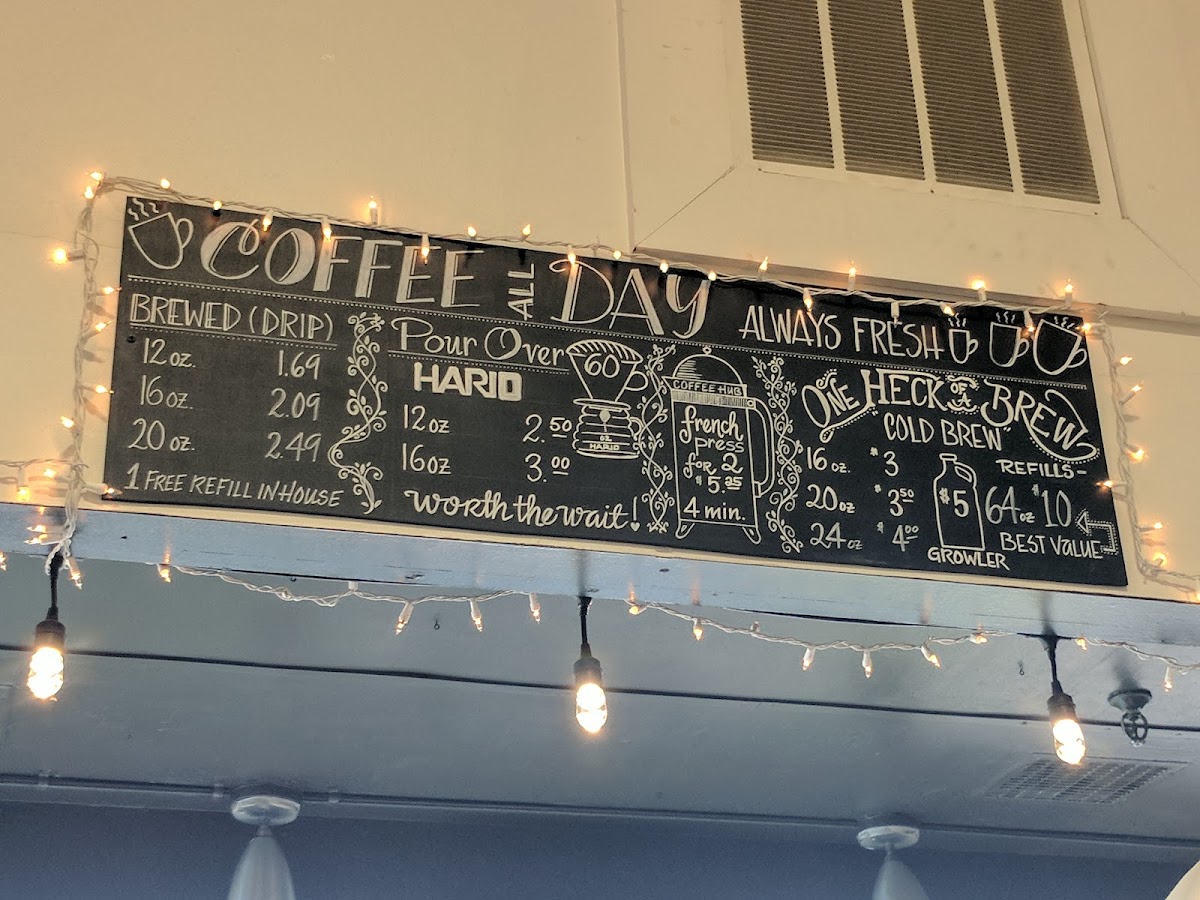 COFFEE ALL DAY ALWAYS FRESH
BREWED (DRIP)
12 oz. 1.69
16 oz. 2.09
20 oz. 2.49
1 FREE REFILL IN HOUSE
Pour Over
HARIO
12 oz 2.50
16 oz 3.00
worth the wait!
60
02
HARIO
COFFEE HUB
french
press
for 2
$5.25
4 min.
ONE HECK OF A BREW
COLD BREW
16 oz. $3
20 oz $3.50
24 oz $4.00
$5
GROWLER
REFILLS-
64 oz $10
BEST VALUE